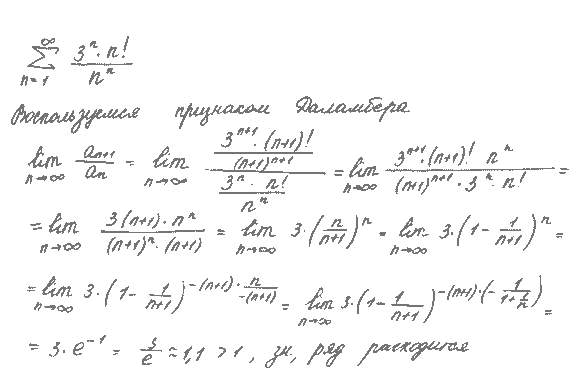 ∑_{n=1}^{∞} \frac{3^n · n!}{n^n}
Воспользуемся признаком Даламбера
\lim_{n→∞} \frac{a_{n+1}}{a_n} = \lim_{n→∞} \frac{\frac{3^{n+1} · (n+1)!}{(n+1)^{n+1}}}{\frac{3^n · n!}{n^n}} = \lim_{n→∞} \frac{3^{n+1} · (n+1)! n^n}{(n+1)^{n+1} · 3^n · n!} =
= \lim_{n→∞} \frac{3(n+1) · n^n}{(n+1)^n · (n+1)} = \lim_{n→∞} 3 · (\frac{n}{n+1})^n = \lim_{n→∞} 3 · (1 - \frac{1}{n+1})^n =
= \lim_{n→∞} 3 · (1 - \frac{1}{n+1})^{-(n+1) · \frac{n}{-(n+1)}} = \lim_{n→∞} 3 · (1 - \frac{1}{n+1})^{-(n+1) · (-\frac{1}{1+\frac{1}{n}})} =
= 3 · e^{-1} = \frac{3}{e} ≈ 1,1 > 1 , зн, ряд расходится